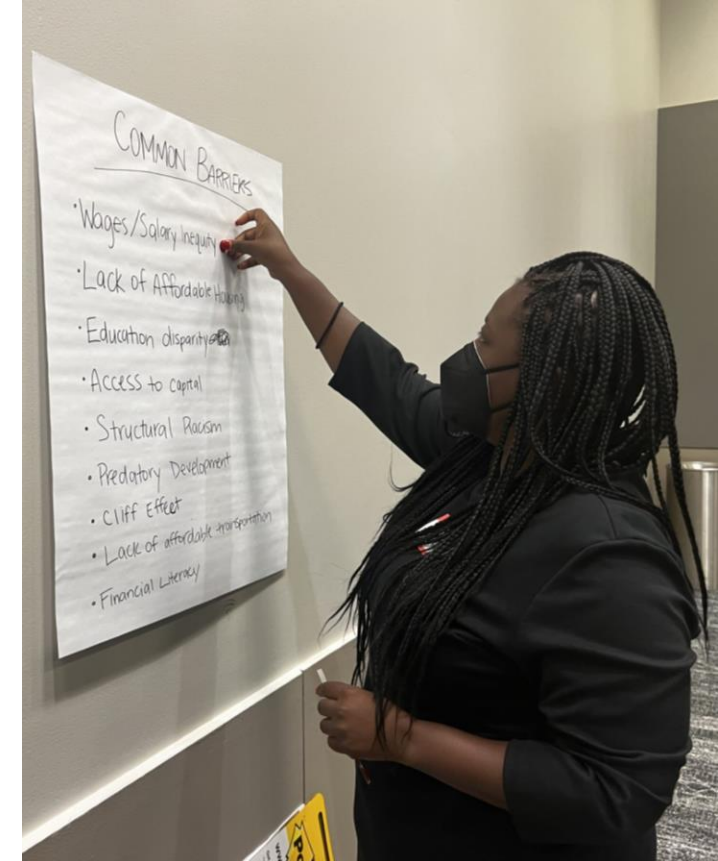 COMMON BARRIERS
•Wages/Salary Inequity
•Lack of Affordable Housing
•Education disparity
•Access to capital
•Structural Racism
•Predatory Development
•Cliff Effect
•Lack of affordable transportation
•Financial Literacy